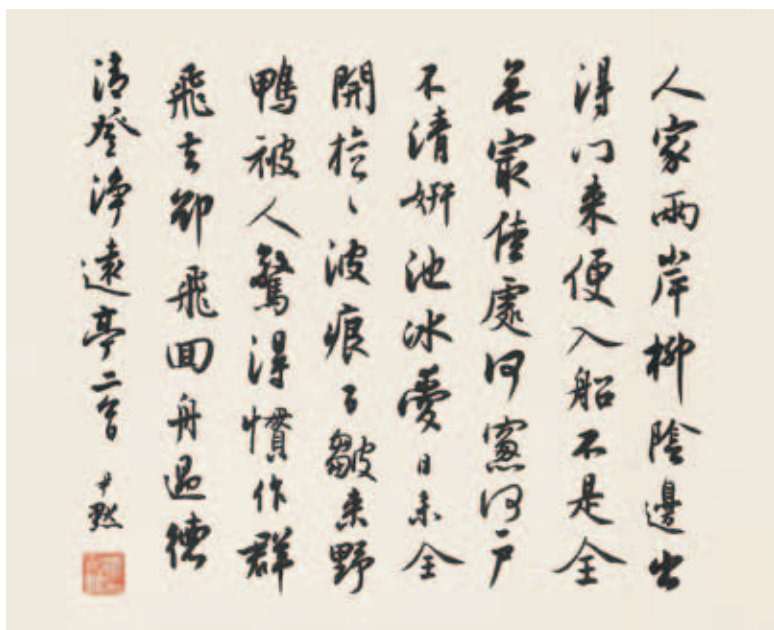 人家兩岸柳陰邊出
得門来便入船不是全
無最佳處何窻何户
不清妍池冰受日未全
開旋〻波痕百皺来野
鴨被人驚得慣作群
飛去却飛回舟過德
清登淨遠亭二首
尹默